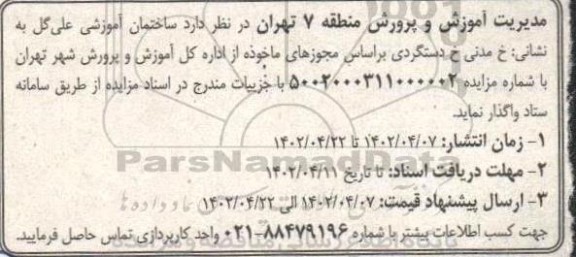 مدیریت آموزش و پرورش منطقه ۷ تهران در نظر دارد ساختمان آموزشی علی‌گل به
نشانی: خ مدنی خ دستگردی براساس مجوزهای ماخوذه از اداره کل آموزش و پرورش شهر تهران
با شماره مزایده ۵۰۰۲۰۰۰۳۱۱۰۰۰۰۰۲ با جزییات مندرج در اسناد مزایده از طریق سامانه
ستاد واگذار نماید.
۱- زمان انتشار: ۱۴۰۲/۰۴/۰۷ تا ۱۴۰۲/۰۴/۲۲
ParsNamadData
۲- مهلت دریافت اسناد: تا تاریخ ۱۴۰۲/۰۴/۱۱
۳- ارسال پیشنهاد قیمت: ۱۴۰۲/۰۴/۰۷ الی ۱۴۰۲/۰۴/۲۲
جهت کسب اطلاعات بیشتر با شماره ۸۸۴۷۹۱۹۶-۰۲۱ واحد کاربردازی تماس حاصل فرمایید.